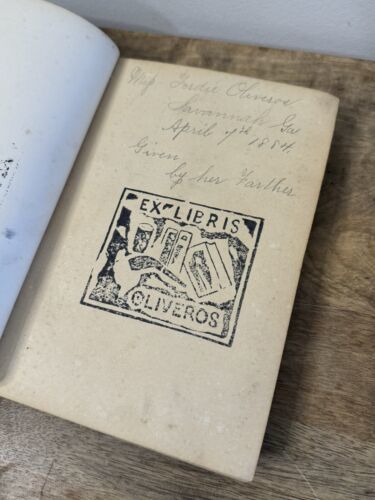 Miss Fordie Oliveros
Savannah Ga
April 7th 1884.
Given
by her Farther
EX-LIBRIS
OLIVEROS